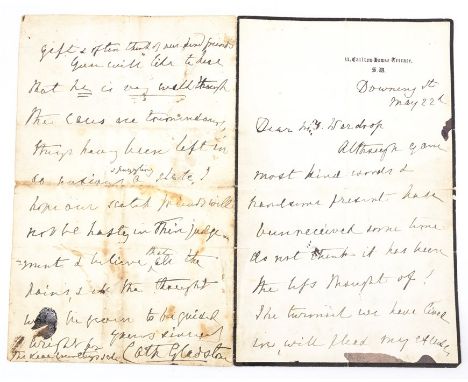 11, Carlton House Terrace.
S.W.
Downing St
May 22d
Dear Mr Wardrop
Although your
most kind words &
handsome present have
been received some time
do not think it has been
the less thought of!
The turmoil we have lived
in, will plead my excuse
gift & often think of our kind friends
You will like to hear
that he is very well though
the cares are tremendous,
things have been left in
so puzzling a state. I
hope our Scotch friends will
not be hasty in their judge-
ment & believe that all the
pains, & all the thought
will be given to be guided
yours sincerely
Cath Gladstone